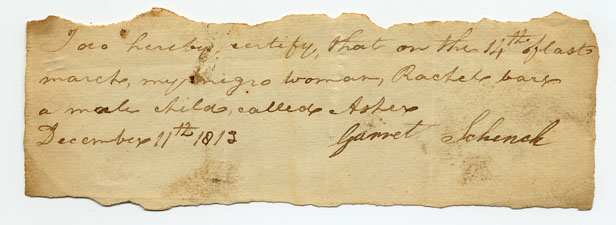 I do hereby certify, that on the 14th of last
march, my negro woman, Rachel bare
a male child, called Asher
December 11th 1813 Garret Schenck